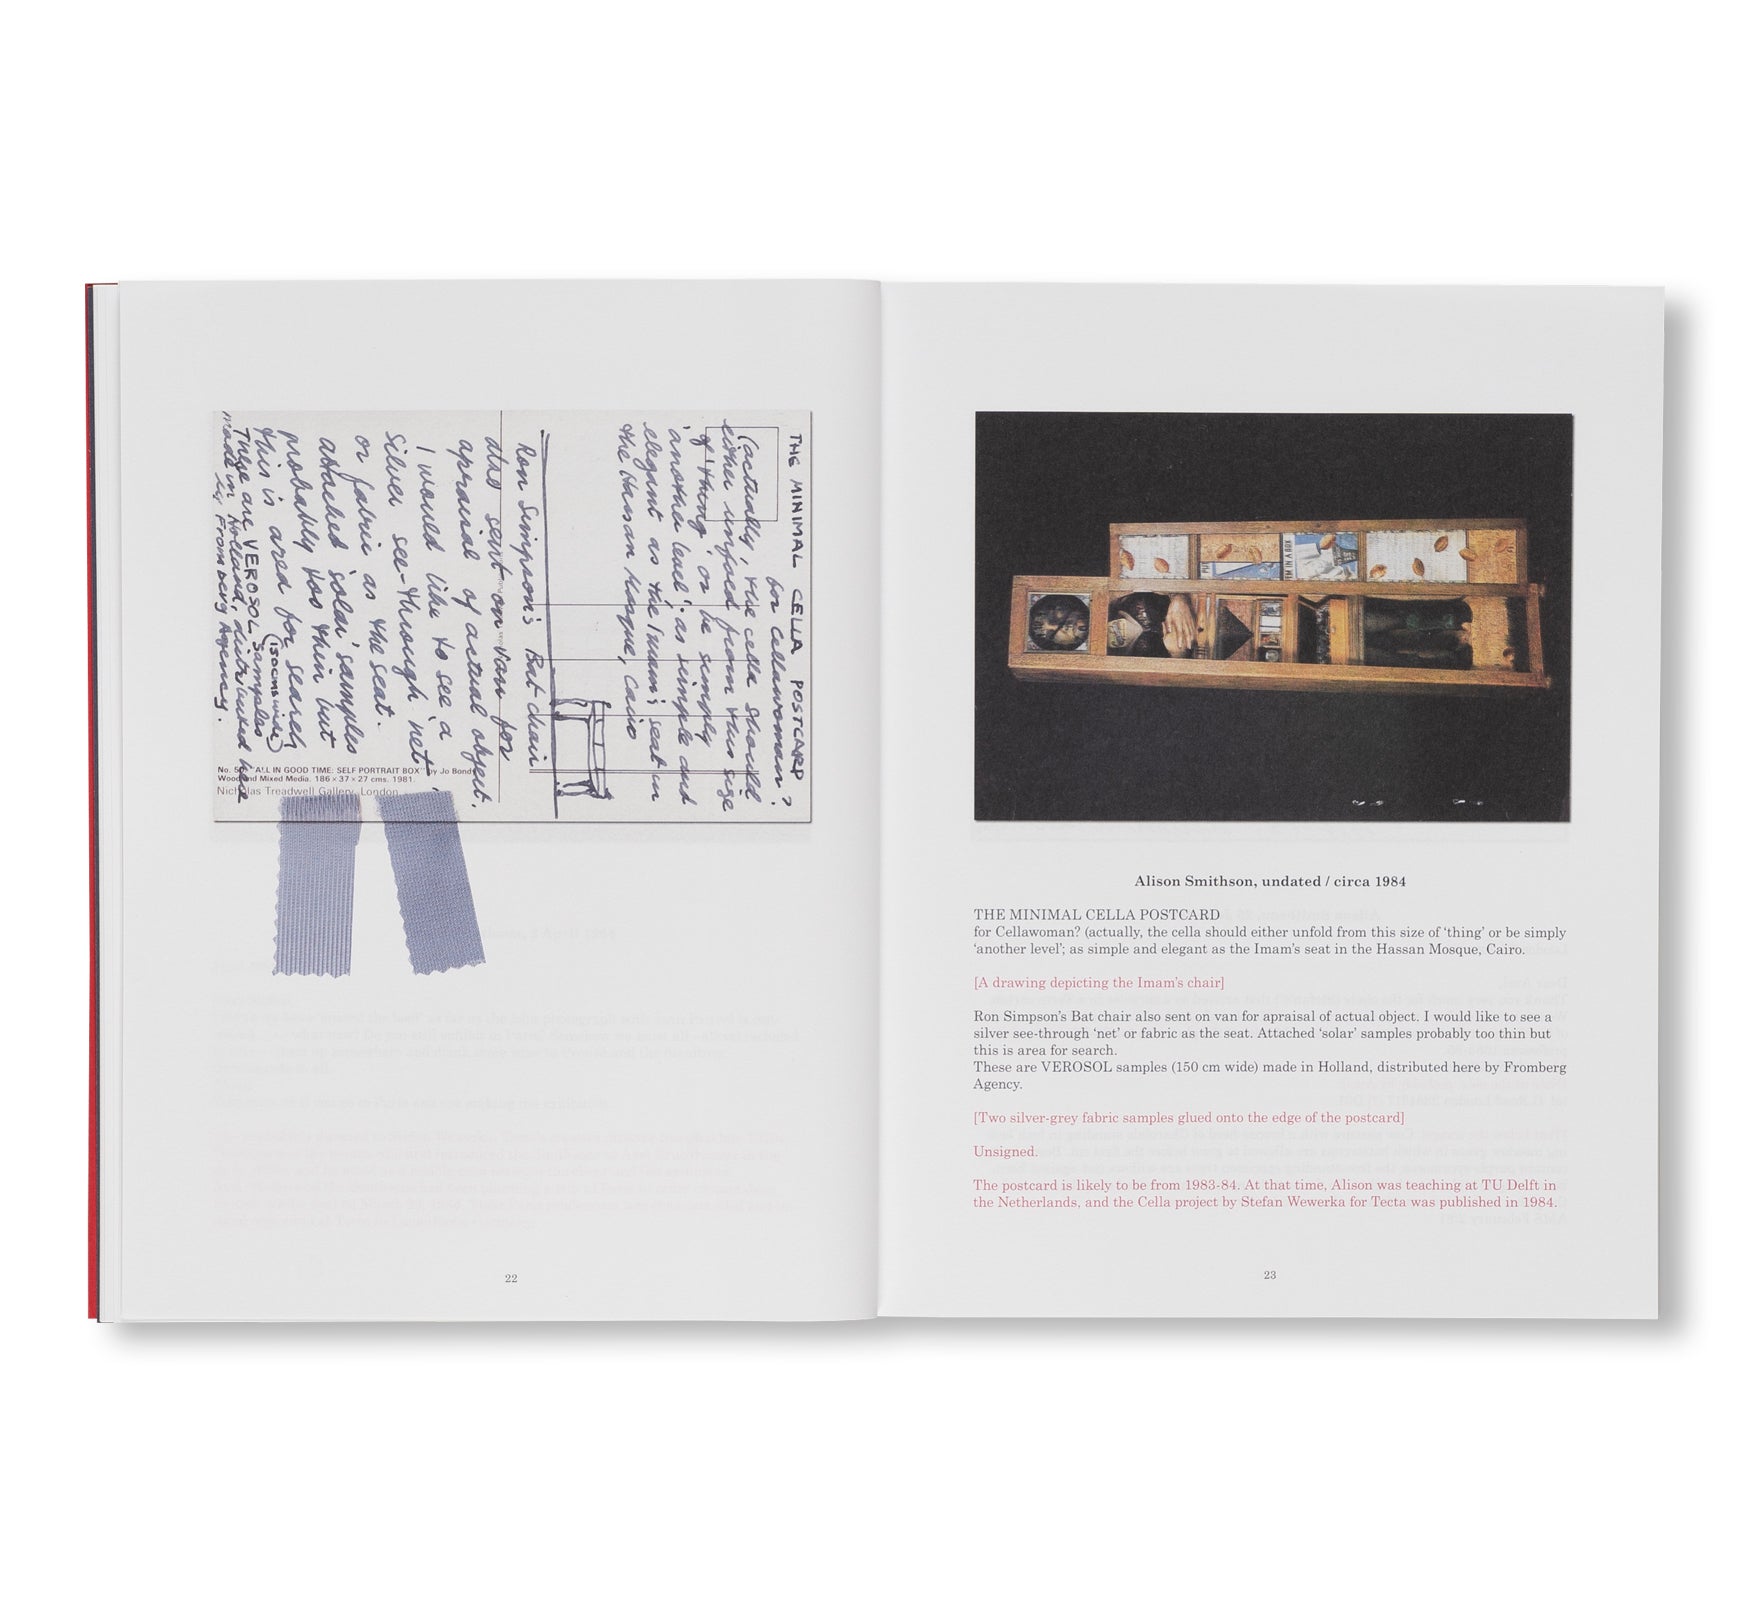 THE MINIMAL CELLA POSTCARD
for Cellawoman?
(actually, the cella should
either unfold from this size
of 'thing' or be simply
'another level'; as simple and
elegant as the Imam's seat in
the Hassan Mosque, Cairo
Ron Simpson's Bat chair
also sent on van for
apraisal of actual object.
I would like to see a
silver see-through 'net'
or fabric as the seat.
attached 'solar' samples
probably too thin but
this is area for search
THESE ARE VEROSOL samples
(150cms wide)
made in Holland, distributed here
by Fromberg Agency.
No. 5 "ALL IN GOOD TIME: SELF PORTRAIT BOX" by Jo Bond
Wood and Mixed Media. 186 × 37 × 27 cms. 1981.
Nicholas Treadwell Gallery, London
22
M IN A BOX
Alison Smithson, undated / circa 1984
THE MINIMAL CELLA POSTCARD
for Cellawoman? (actually, the cella should either unfold from this size of ‘thing’ or be simply
‘another level’; as simple and elegant as the Imam’s seat in the Hassan Mosque, Cairo.
[A drawing depicting the Imam’s chair]
Ron Simpson’s Bat chair also sent on van for apraisal of actual object. I would like to see a
silver see-through ‘net’ or fabric as the seat. Attached ‘solar’ samples probably too thin but
this is area for search.
These are VEROSOL samples (150 cm wide) made in Holland, distributed here by Fromberg
Agency.
[Two silver-grey fabric samples glued onto the edge of the postcard]
Unsigned.
The postcard is likely to be from 1983-84. At that time, Alison was teaching at TU Delft in
the Netherlands, and the Cella project by Stefan Wewerka for Tecta was published in 1984.
23